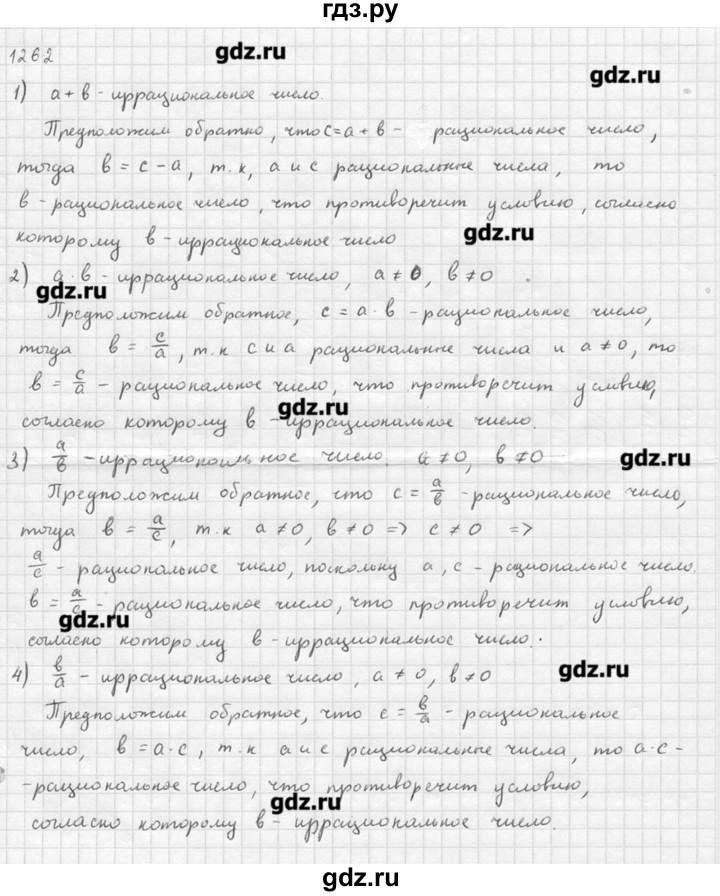 гдз.ру
1262
gdz.ru
1) a + b - иррациональное число.
gdz.ru
Предположим обратно, что c = a + b - рациональное число,
тогда b = c - a, т.к, a и c рациональные числа, то
b - рациональное число, что противоречит условию, согласно
которому b - иррациональное число
gdz.ru
2) a · b - иррациональное число, a ≠ 0, b ≠ 0
gdz.ru
Предположим обратное, c = a · b - рациональное число,
тогда b = c/a, т.к c и a рациональные числа и a ≠ 0, то
b = c/a - рациональное число, что противоречит условию,
gdz.ru
согласно которому b - иррациональное число.
3) a/b - иррациональное число. a ≠ 0, b ≠ 0
gdz.ru
Предположим обратное, что c = a/b - рациональное число,
тогда b = a/c, т.к a ≠ 0, b ≠ 0 => c ≠ 0 =>
a/c - рациональное число, поскольку a, c - рациональное число.
b = a/c - рациональное число, что противоречит условию,
gdz.ru
согласно которому b - иррациональное число.
4) b/a - иррациональное число, a ≠ 0, b ≠ 0
gdz.ru
Предположим обратное, что c = b/a - рациональное
число, b = a · c, т.к a и c рациональные числа, то a · c -
- рациональное число, что противоречит условию,
gdz.ru
согласно которому b - иррациональное число.
gdz.ru